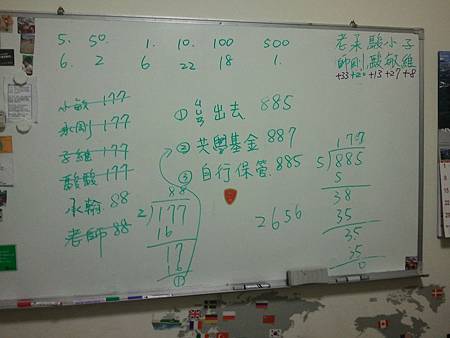 5. 50. 1. 10. 100 500
6. 2 6 22 18 1.
老柔駿小子
師剛駿敏維
+33 +2 +13 +27 +8
小敏 177
柔剛 177
子維 177
駿駿 177
承翰 88
老師 88
① 出去 885
② 共學基金 887
③ 自行保管 885
2656
88
2)177
16
17
16
1
177
5)885
5
38
35
35
35
0